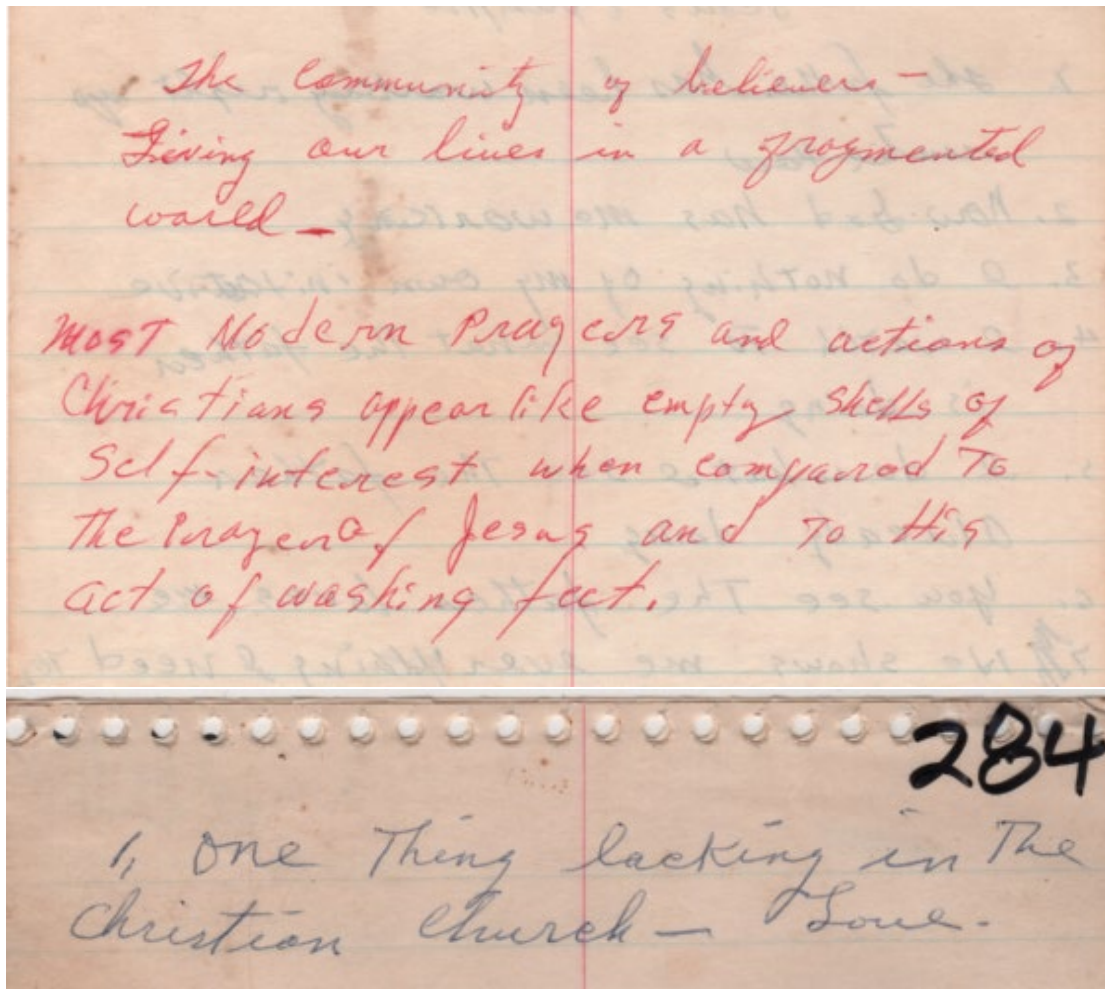 The Community of believers –
Living our lives in a fragmented
world –
MOST Modern Prayers and actions of
Christians appear like empty shells of
Self-interest when compared To
The Prayer of Jesus and To His
act of washing feet.
284
1, One Thing lacking in The
Christian Church – Love.